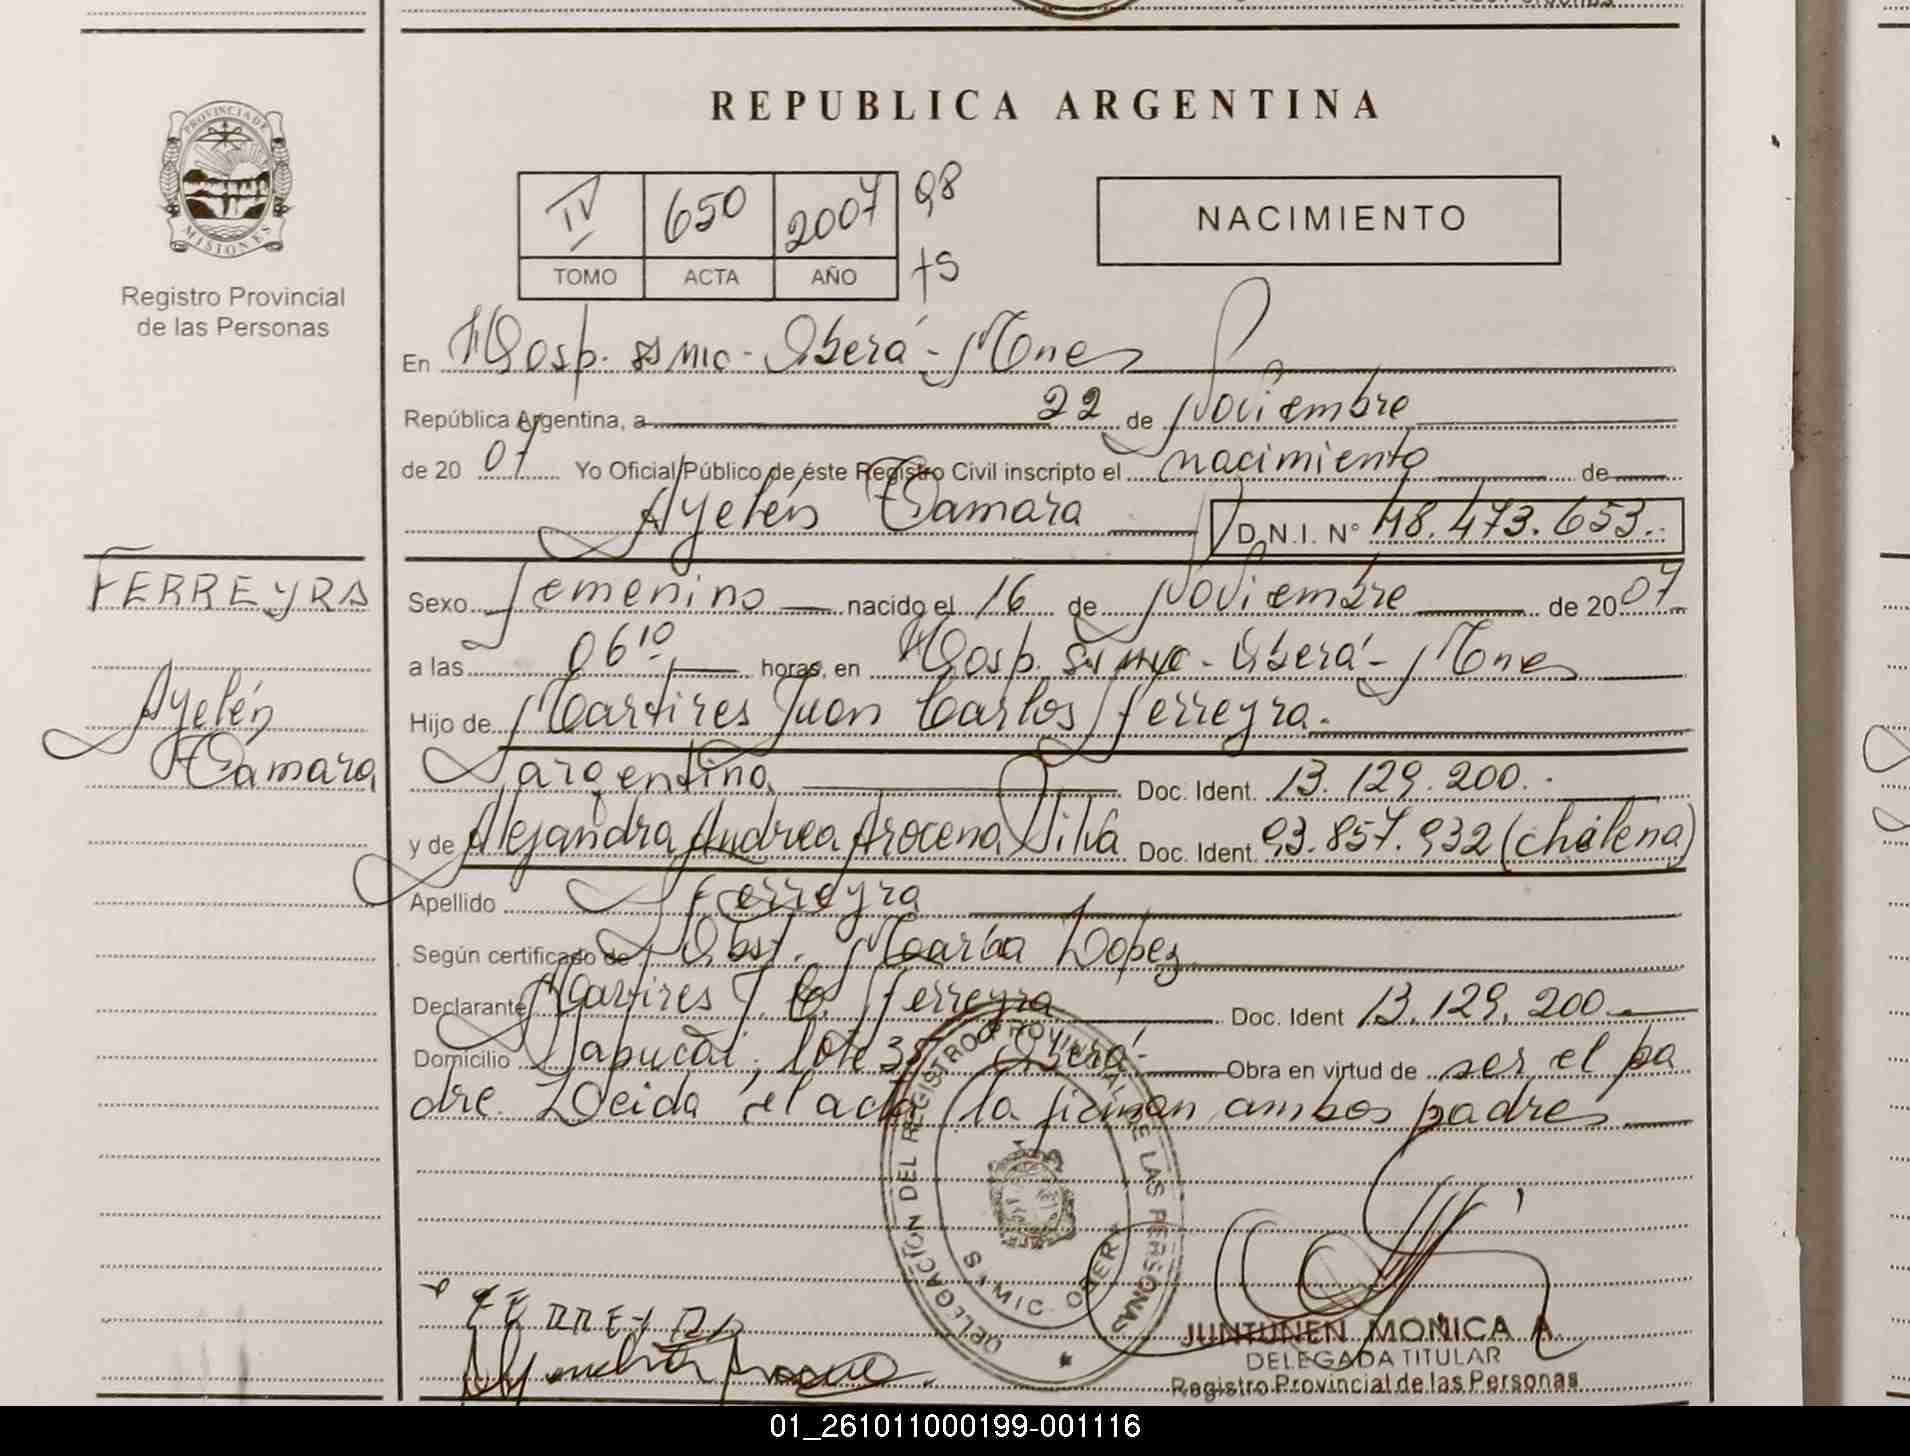 REPUBLICA ARGENTINA
PROVINCIA DE MISIONES
Registro Provincial
de las Personas
IV 650 2007 98
TOMO ACTA AÑO fs
NACIMIENTO
En Hosp. Samic - Oberá - Mnes
República Argentina, a 22 de Noviembre
de 2007 Yo Oficial Público de éste Registro Civil inscripto el nacimiento de
Ayelén Tamara D.N.I. Nº 48.473.653.-
FERREYRA
Ayelén
Tamara
Sexo femenino nacido el 16 de Noviembre de 2007
a las 06 10 horas, en Hosp. Samic - Oberá - Mnes
Hijo de Martires Juan Carlos Ferreyra.
argentina Doc. Ident. 13.129.200.-
y de Alejandra Andrea Arocena Silva Doc. Ident. 93.857.932 (chilena)
Apellido Ferreyra
Según certificado de Obst. Marta Lopez
Declarante Martires J. C. Ferreyra Doc. Ident 13.129.200
Domicilio Yapucaí, lote 35 Oberá - Obra en virtud de ser el pa
dre. Leída el acta la firman ambos padres
DELEGACION DEL REGISTRO PROVINCIAL DE LAS PERSONAS
SAMIC. OBERA
FERREYRA
JUNTUNEN MONICA A.
DELEGADA TITULAR
Registro Provincial de las Personas
01_261011000199-001116